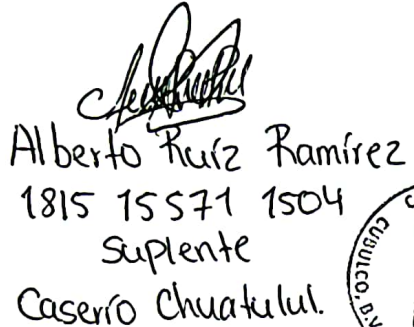 Alberto Ruíz Ramírez
1815 15571 1504
suplente
Caserío Chuatulul.
CUBULCO, B.V.